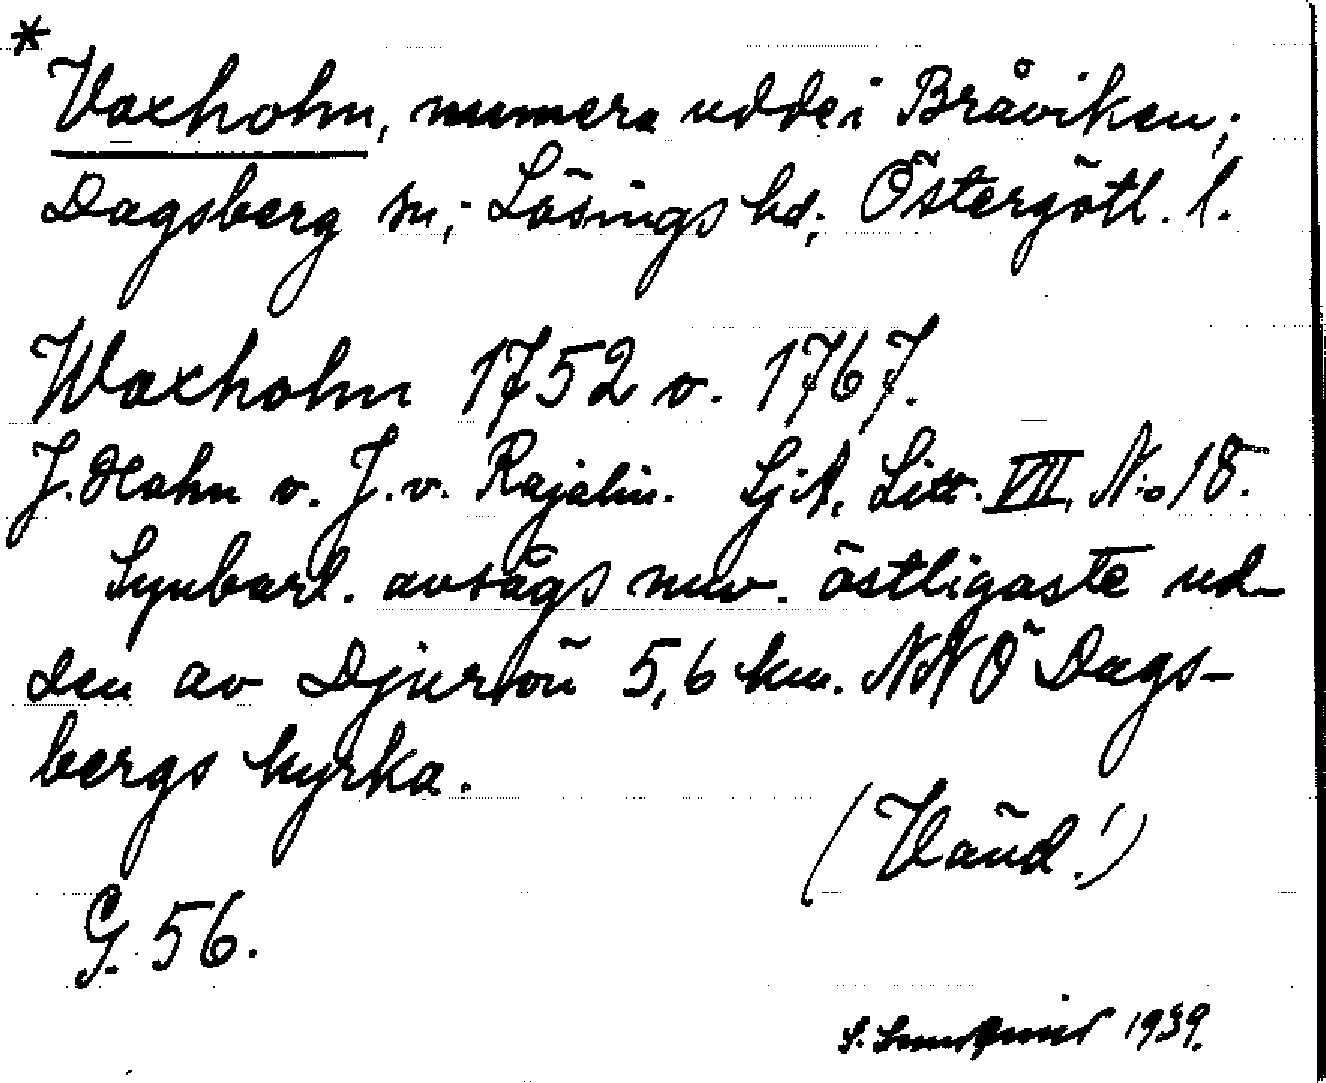 *
Vaxholm, numera udde i Bråviken;
Dagsberg sn; Lösings hd; Östergötl. l.
Waxholm 1752 o. 1767.
J. Hahn o. J. v. Rajalin. SjA. Litt. VII. N:o 18.
Synbarl. avsågs nuv. östligaste ud-
den av Djurön 5,6 km. NNÖ Dags-
bergs kyrka.
(Vänd!)
G. 56.
S. 1939.